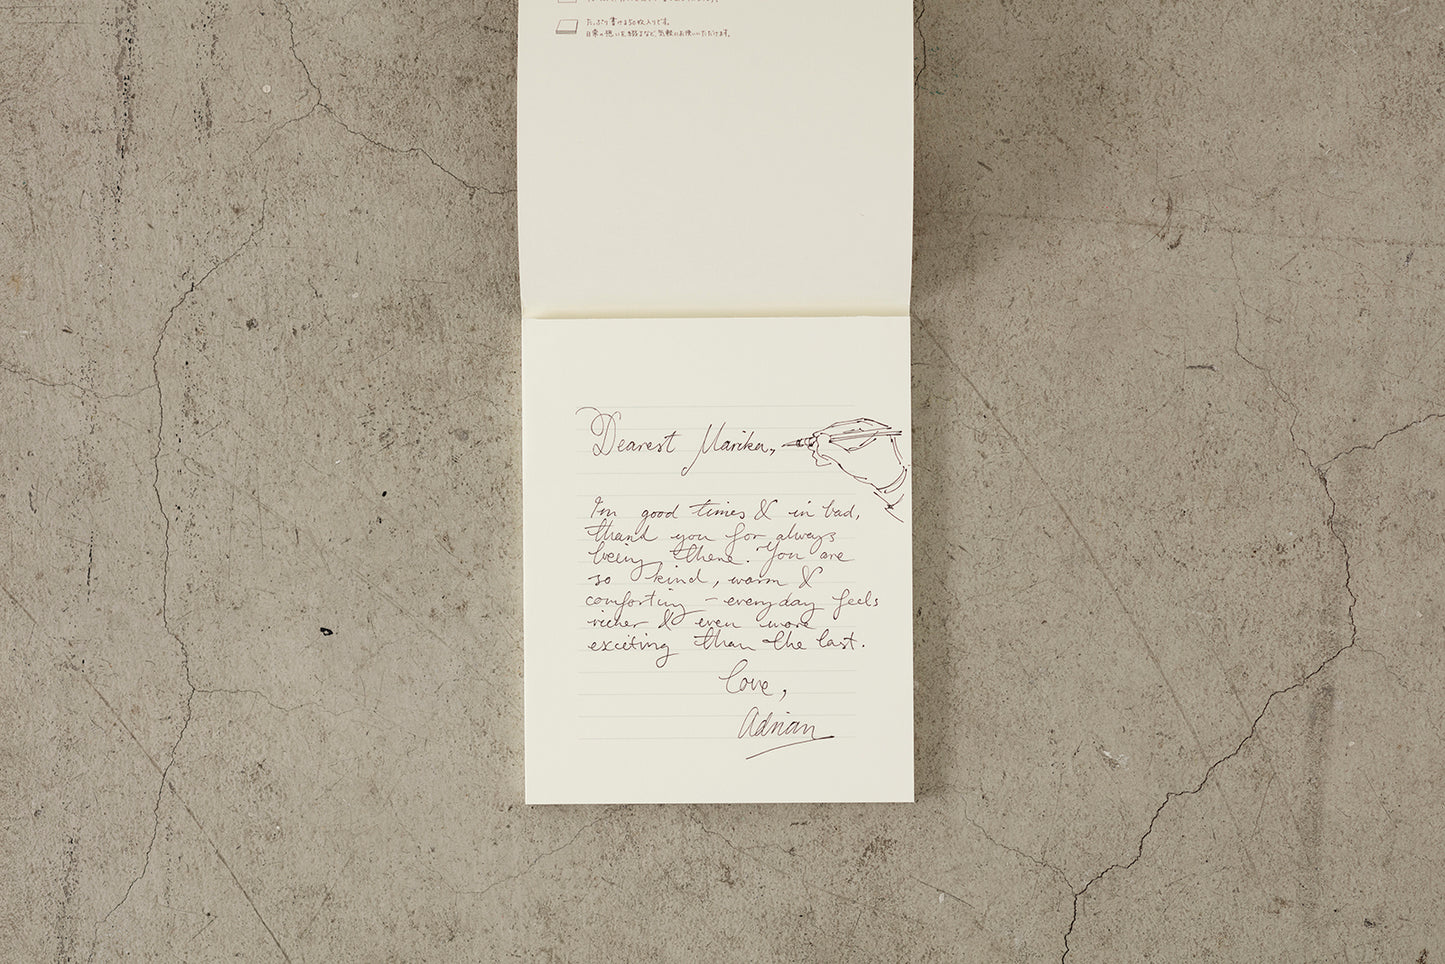 たっぷり書ける50枚入りです。
日常の想いを綴るなど、気軽にお使いいただけます。
Dearest Marika,
In good times & in bad,
thank you for always
being there. You are
so kind, warm &
comforting – everyday feels
richer & even more
exciting than the last.
Love,
Adrian